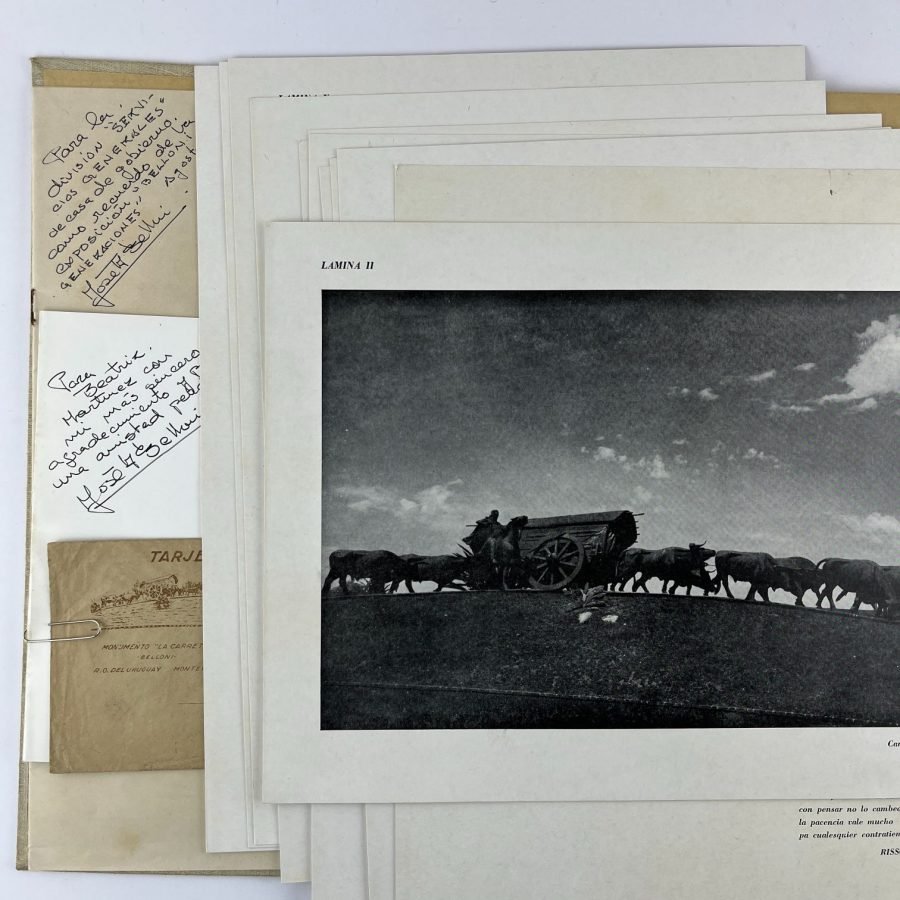 Para la
división "SERVI-
CIOS GENERALES"
de casa de gobierno.
como recuerdo de la
exposición "BELLONI
GENERACIONES"
Agost
José Belloni
Para
Beatriz
Martínez con
mi más sincero
agradecimiento
una amistad
José Belloni
TARJE
MONUMENTO "LA CARRET
BELLONI
R.O. DEL URUGUAY MONTE
LAMINA
LAMINA II
Car
con pensar no lo cambea
la pacencia vale mucho
pa cualesquier contratiem
RISS